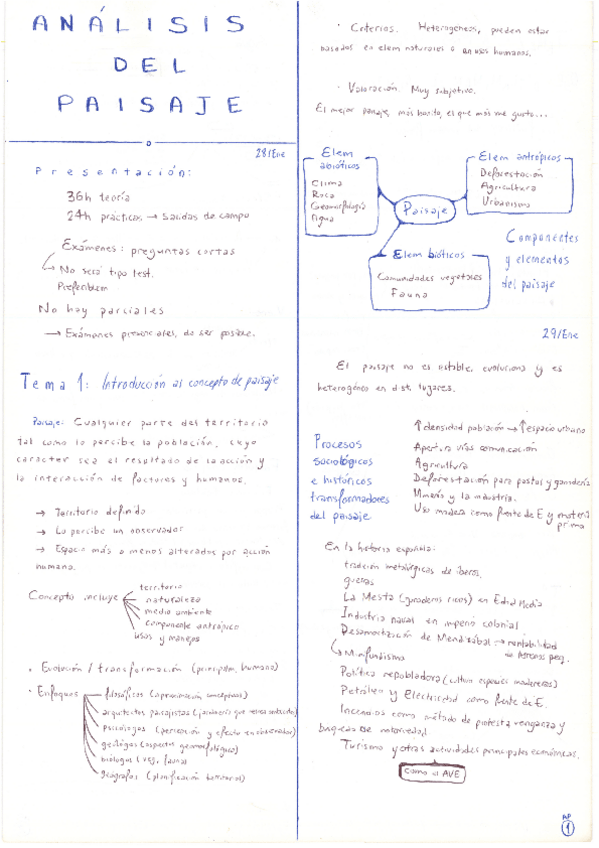 ANÁLISIS
DEL
PAISAJE
28/Ene
Presentación:
36h teoría
24h prácticas → Salidas de campo
Exámenes: preguntas cortas
No será tipo test.
No hay parciales
→ Exámenes presenciales, de ser posible.
Tema 1: Introducción al concepto de paisaje
Paisaje: Cualquier parte del territorio
tal como lo percibe la población, cuyo
caracter sea el resultado de la acción y
la interacción de factores y humanos.
→ Territorio definido
→ Lo percibe un observador
→ Espacio más o menos alterados por acción
humana.
Concepto incluye
territorio
naturaleza
medio ambiente
componente antrópico
usos y manejos
• Evolución / transformación (principalm. humano)
• Enfoques
filosóficos (aproximación conceptual)
arquitectos paisajistas
psicólogos (percepción y efecto en observador)
geólogos (aspectos geomorfológico)
biólogos (veg, fauna)
geógrafos (planificación territorio)
• Criterios. Heterogéneos, pueden estar
basados en elem naturales o en usos humanos.
• Valoración. Muy subjetivo.
El mejor paisaje, más bonito, el que más me gusta...
Elem
abióticos
Clima
Roca
Geomorfología
Agua
Paisaje
Elem antrópicos
Deforestación
Agricultura
Urbanismo
Elem bióticos
Comunidades vegetales
Fauna
Componentes
y elementos
del paisaje
29/Ene
El paisaje no es estable, evoluciona y es
heterogéneo en dist. lugares.
Procesos
sociológicos
e históricos
transformadores
del paisaje
↑ densidad población → ↑ espacio urbano
Apertura vías comunicación
Agricultura
Deforestación para pastos y ganadería
Minería y la industria.
Uso madera como fuente de E y materia
prima
En la historia española:
tradición metalúrgicas de íberos.
guerras
La Mesta (ganaderos ricos) en Edad Media
Industria naval en imperio colonial
Desamortización de Mendizábal → rentabilidad
Minifundismo
Política repobladora (cultivo especies madereras)
Petróleo y Electricidad como fuente de E.
Incendios como método de protesta venganza y
Turismo y otras actividades principales económicas.
Como el AVE
AP
1